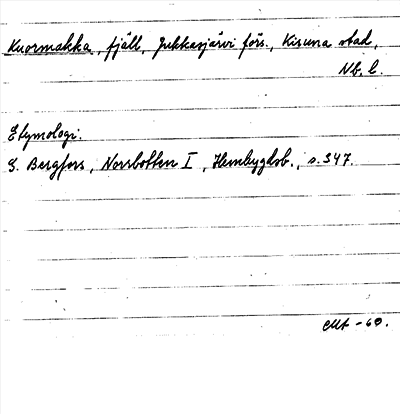 Kuormakka, fjäll, Jukkasjärvi förs., Kiruna stad,
Nb. l.
Etymologi.
G. Bergfors, Norrbotten I, Hembygdsb., s. 347.
-60.